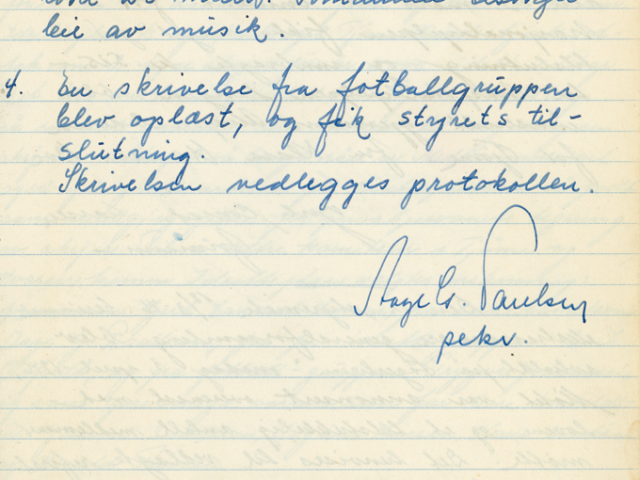 leie av müsik.
4. En skrivelse fra fotballgrüppen
blev oplæst, og fik styrets til-
slütning.
Skrivelsen vedlegges protokollen.
Aage G. Paulsen
sekr.